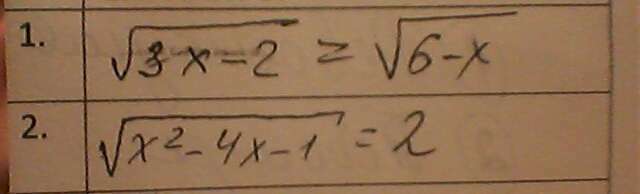 1. √(3x-2) = √(6-x)
2. √(x²-4x-1) = 2